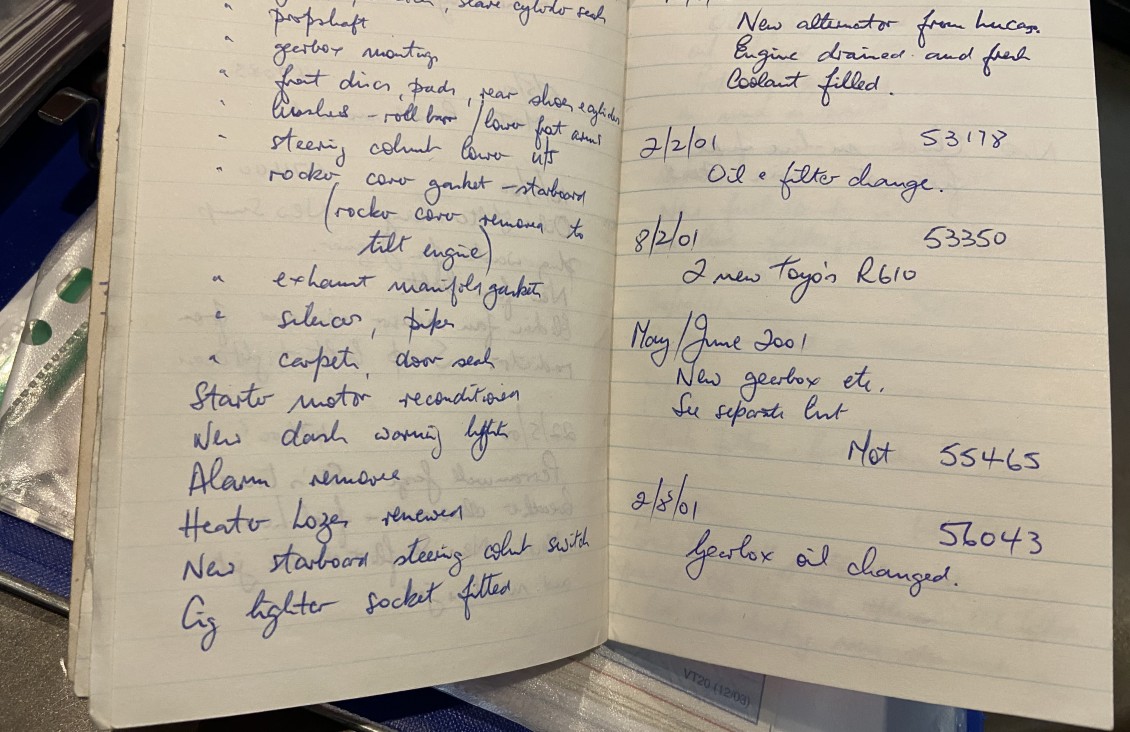 " propshaft
" gearbox mountings
" front discs, pads, rear shoes & cylinders
" bushes - roll bar / lower front arms
" steering column lower u/j
" rocker cover gasket - starboard
(rocker cover removed to
tilt engine)
" exhaust manifold gaskets
" silencer, pipes
" carpets, door seals
Starter motor reconditioned
New dash warning lights
Alarm removed
Heater hoses renewed
New starboard steering column switch
Cig lighter socket fitted
New alternator from Lucas.
Engine drained and fresh
Coolant filled.
2/2/01 53178
Oil & filter change.
8/2/01 53350
2 new Toyo's R610
May/June 2001
New gearbox etc.
See separate list
Mot 55465
2/8/01 56043
Gearbox oil changed.
VT20 (12/03)